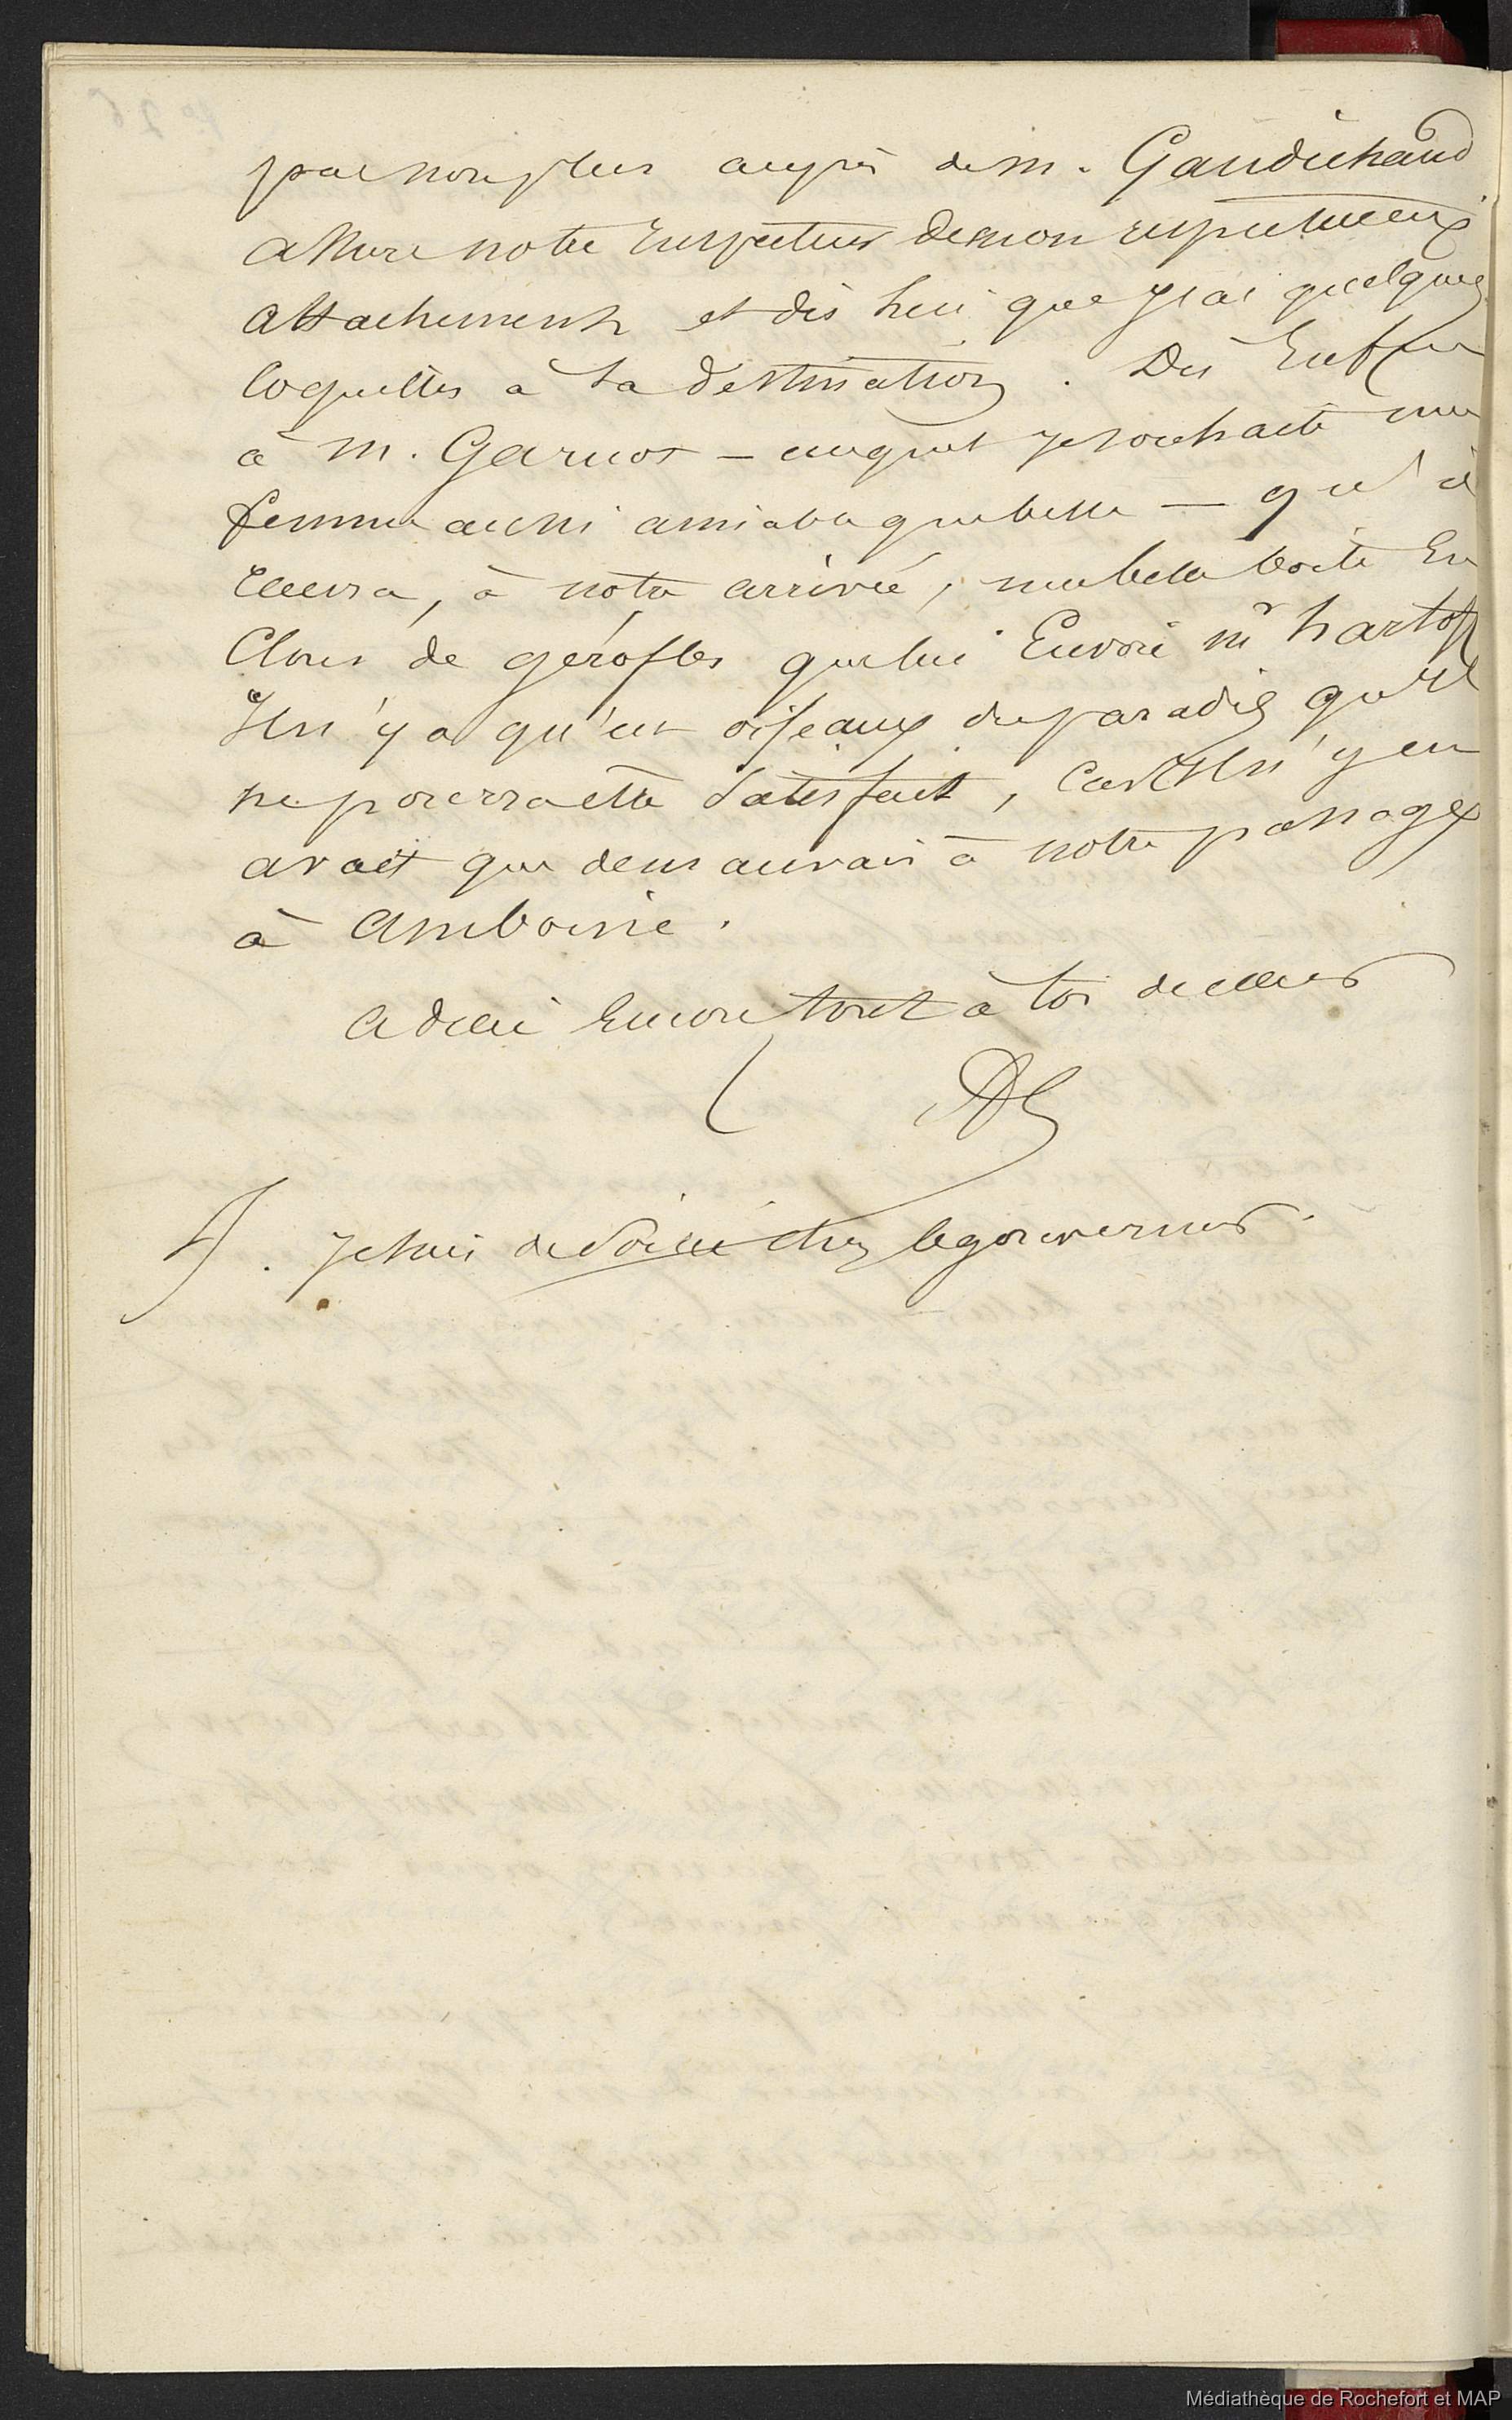 pas non plus auprès de m. Gaudichaud
assure notre Inspecteur de mon respectueux
attachement et dis lui que j'ai quelques
coquilles à sa destination. Dis Enfin
à m. Garnot – auquel je souhaite une
femme aussi aimable que belle – qu'il
recevra, à notre arrivée, une belle boite En
Clous de gérofles que lui Envoi mr hartog
Il n'y a qu'en oiseaux du paradis qu'il
ne pourra être Satisfait, Car Il n'y en
avait que de mauvais à notre passage
à Amboine.
adieu Encore tout à toi de cœur
P. je suis de Soirée chez le gouverneur.
Médiathèque de Rochefort et MAP